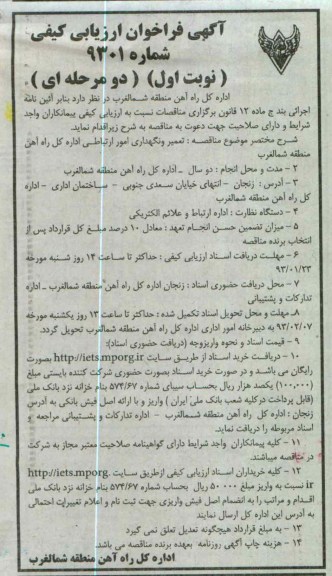 آگهی فراخوان ارزیابی کیفی
شماره ۹۳۰۱
( نوبت اول) ( دو مرحله ای )
اداره کل راه آهن منطقه شمالغرب در نظر دارد بنابر آئین نامه
اجرائی بند ج ماده ۱۲ قانون برگزاری مناقصات نسبت به ارزیابی کیفی پیمانکاران واجد
شرایط و دارای صلاحیت جهت دعوت به مناقصه به شرح زیر اقدام نماید.
شرح مختصر موضوع مناقصه : تعمیر ونگهداری امور ارتباطی اداره کل راه آهن
منطقه شمالغرب
۲ - مدت و محل انجام : دو سال ـ اداره کل راه آهن منطقه شمالغرب
۳ - آدرس : زنجان - انتهای خیابان سعدی جنوبی - ساختمان اداری - اداره
کل راه آهن منطقه شمالغرب
۴ - دستگاه نظارت : اداره ارتباط و علائم الکتریکی
۵ - میزان تضمین حسن انجام تعهد : معادل ۱۰ درصد مبلغ کل قرارداد پس از
انتخاب برنده مناقصه
۶ - مهلت دریافت اسناد ارزیابی کیفی : حداکثر تا ساعت ۱۴ روز شنبه مورخه
۹۳/۰۱/۲۳
۷ - محل دریافت حضوری اسناد : زنجان اداره کل راه آهن منطقه شمالغرب ـ اداره
تدارکات و پشتیبانی
۸ـ مهلت و محل تحویل اسناد تکمیل شده : حداکثر تا ساعت ۱۳ روز یکشنبه مورخه
۹۳/۰۲/۰۷ به دبیرخانه امور اداری اداره کل راه آهن منطقه شمالغرب تحویل گردد.
۹ - قیمت اسناد و نحوه واریزوجه (دریافت حضوری اسناد):
۱۰ - دریافت خرید اسناد از طریق سایت http://iets.mporg.ir بصورت
رایگان می باشد و در صورت خرید اسناد بصورت حضوری شرکت کننده بایستی مبلغ
(۱۰۰,۰۰۰) یکصد هزار ریال بحساب سیبای شماره ۵۷۴/۶۷ بنام خزانه نزد بانک ملی
(قابل پرداخت درکلیه شعب بانک ملی ایران ) واریز و با ارائه اصل فیش بانکی به آدرس
زنجان : اداره کل راه آهن منطقه شمالغرب - اداره تدارکات و پشتیبانی مراجعه و
اسناد مربوطه را دریافت نماید.
۱۱ - کلیه پیمانکاران واجد شرایط دارای گواهینامه صلاحیت معتبر مجاز به شرکت
در مناقصه میباشند.
۱۲ - کلیه خریداران اسناد ارزیابی کیفی ازطریق سایت http://iets.mporg.
ir نسبت به واریز مبلغ ۵۰۰۰۰ ریال بحساب شماره ۵۷۴/۶۷ بنام خزانه نزد بانک ملی
اقدام و مراتب را به انضمام اصل فیش واریزی جهت ثبت نام و اعلام تغییرات احتمالی
به آدرس این اداره کل ارسال نمایند
۱۳ - به مبلغ قرارداد هیچگونه تعدیل تعلق نمی گیرد
۱۴ - هزینه چاپ آگهی روزنامه بعهده برنده مناقصه می باشد.
اداره کل راه آهن منطقه شمالغرب